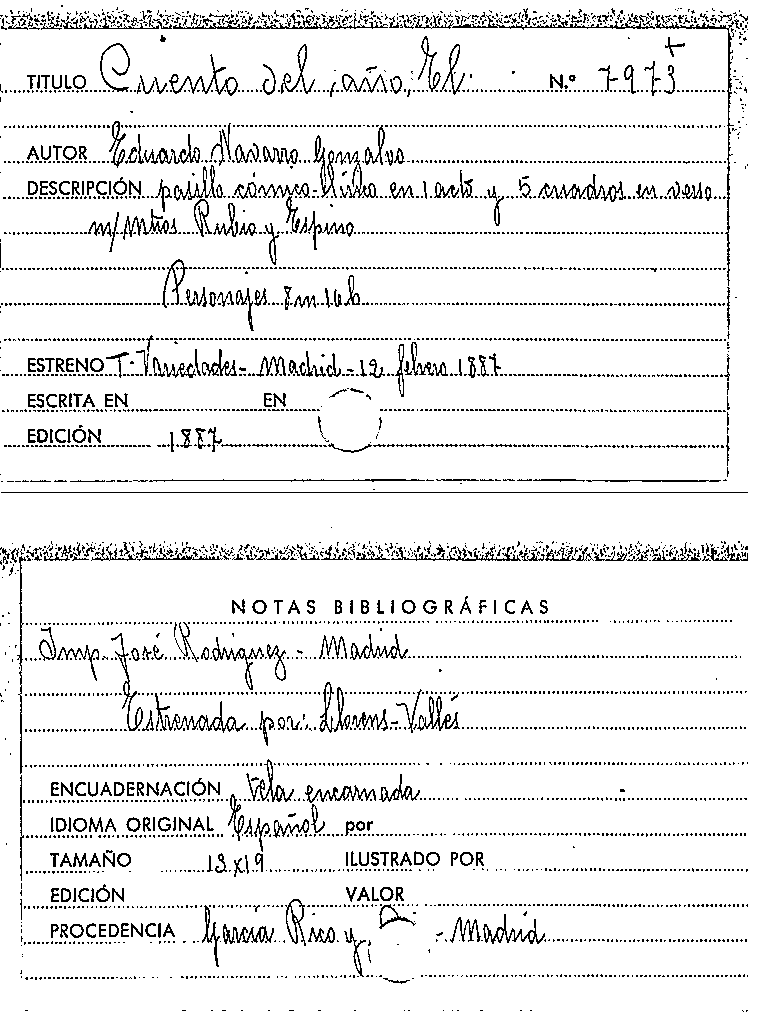 TITULO Cuento del año, El. N.º 7973
AUTOR Eduardo Navarro Gonzalvo
DESCRIPCIÓN pasillo cómico-lírico en 1 acto y 5 cuadros en verso
m/ mtros Rubio y Espino
Personajes 8m 16h
ESTRENO T. Variedades - Madrid - 12 febrero 1887
ESCRITA EN EN
EDICIÓN 1887
NOTAS BIBLIOGRÁFICAS
Imp. José Rodriguez - Madrid
Estrenada por: Llorens - Vallés
ENCUADERNACIÓN tela encarnada
IDIOMA ORIGINAL Español por
TAMAÑO 13x19 ILUSTRADO POR
EDICIÓN VALOR
PROCEDENCIA García Rico y - Madrid